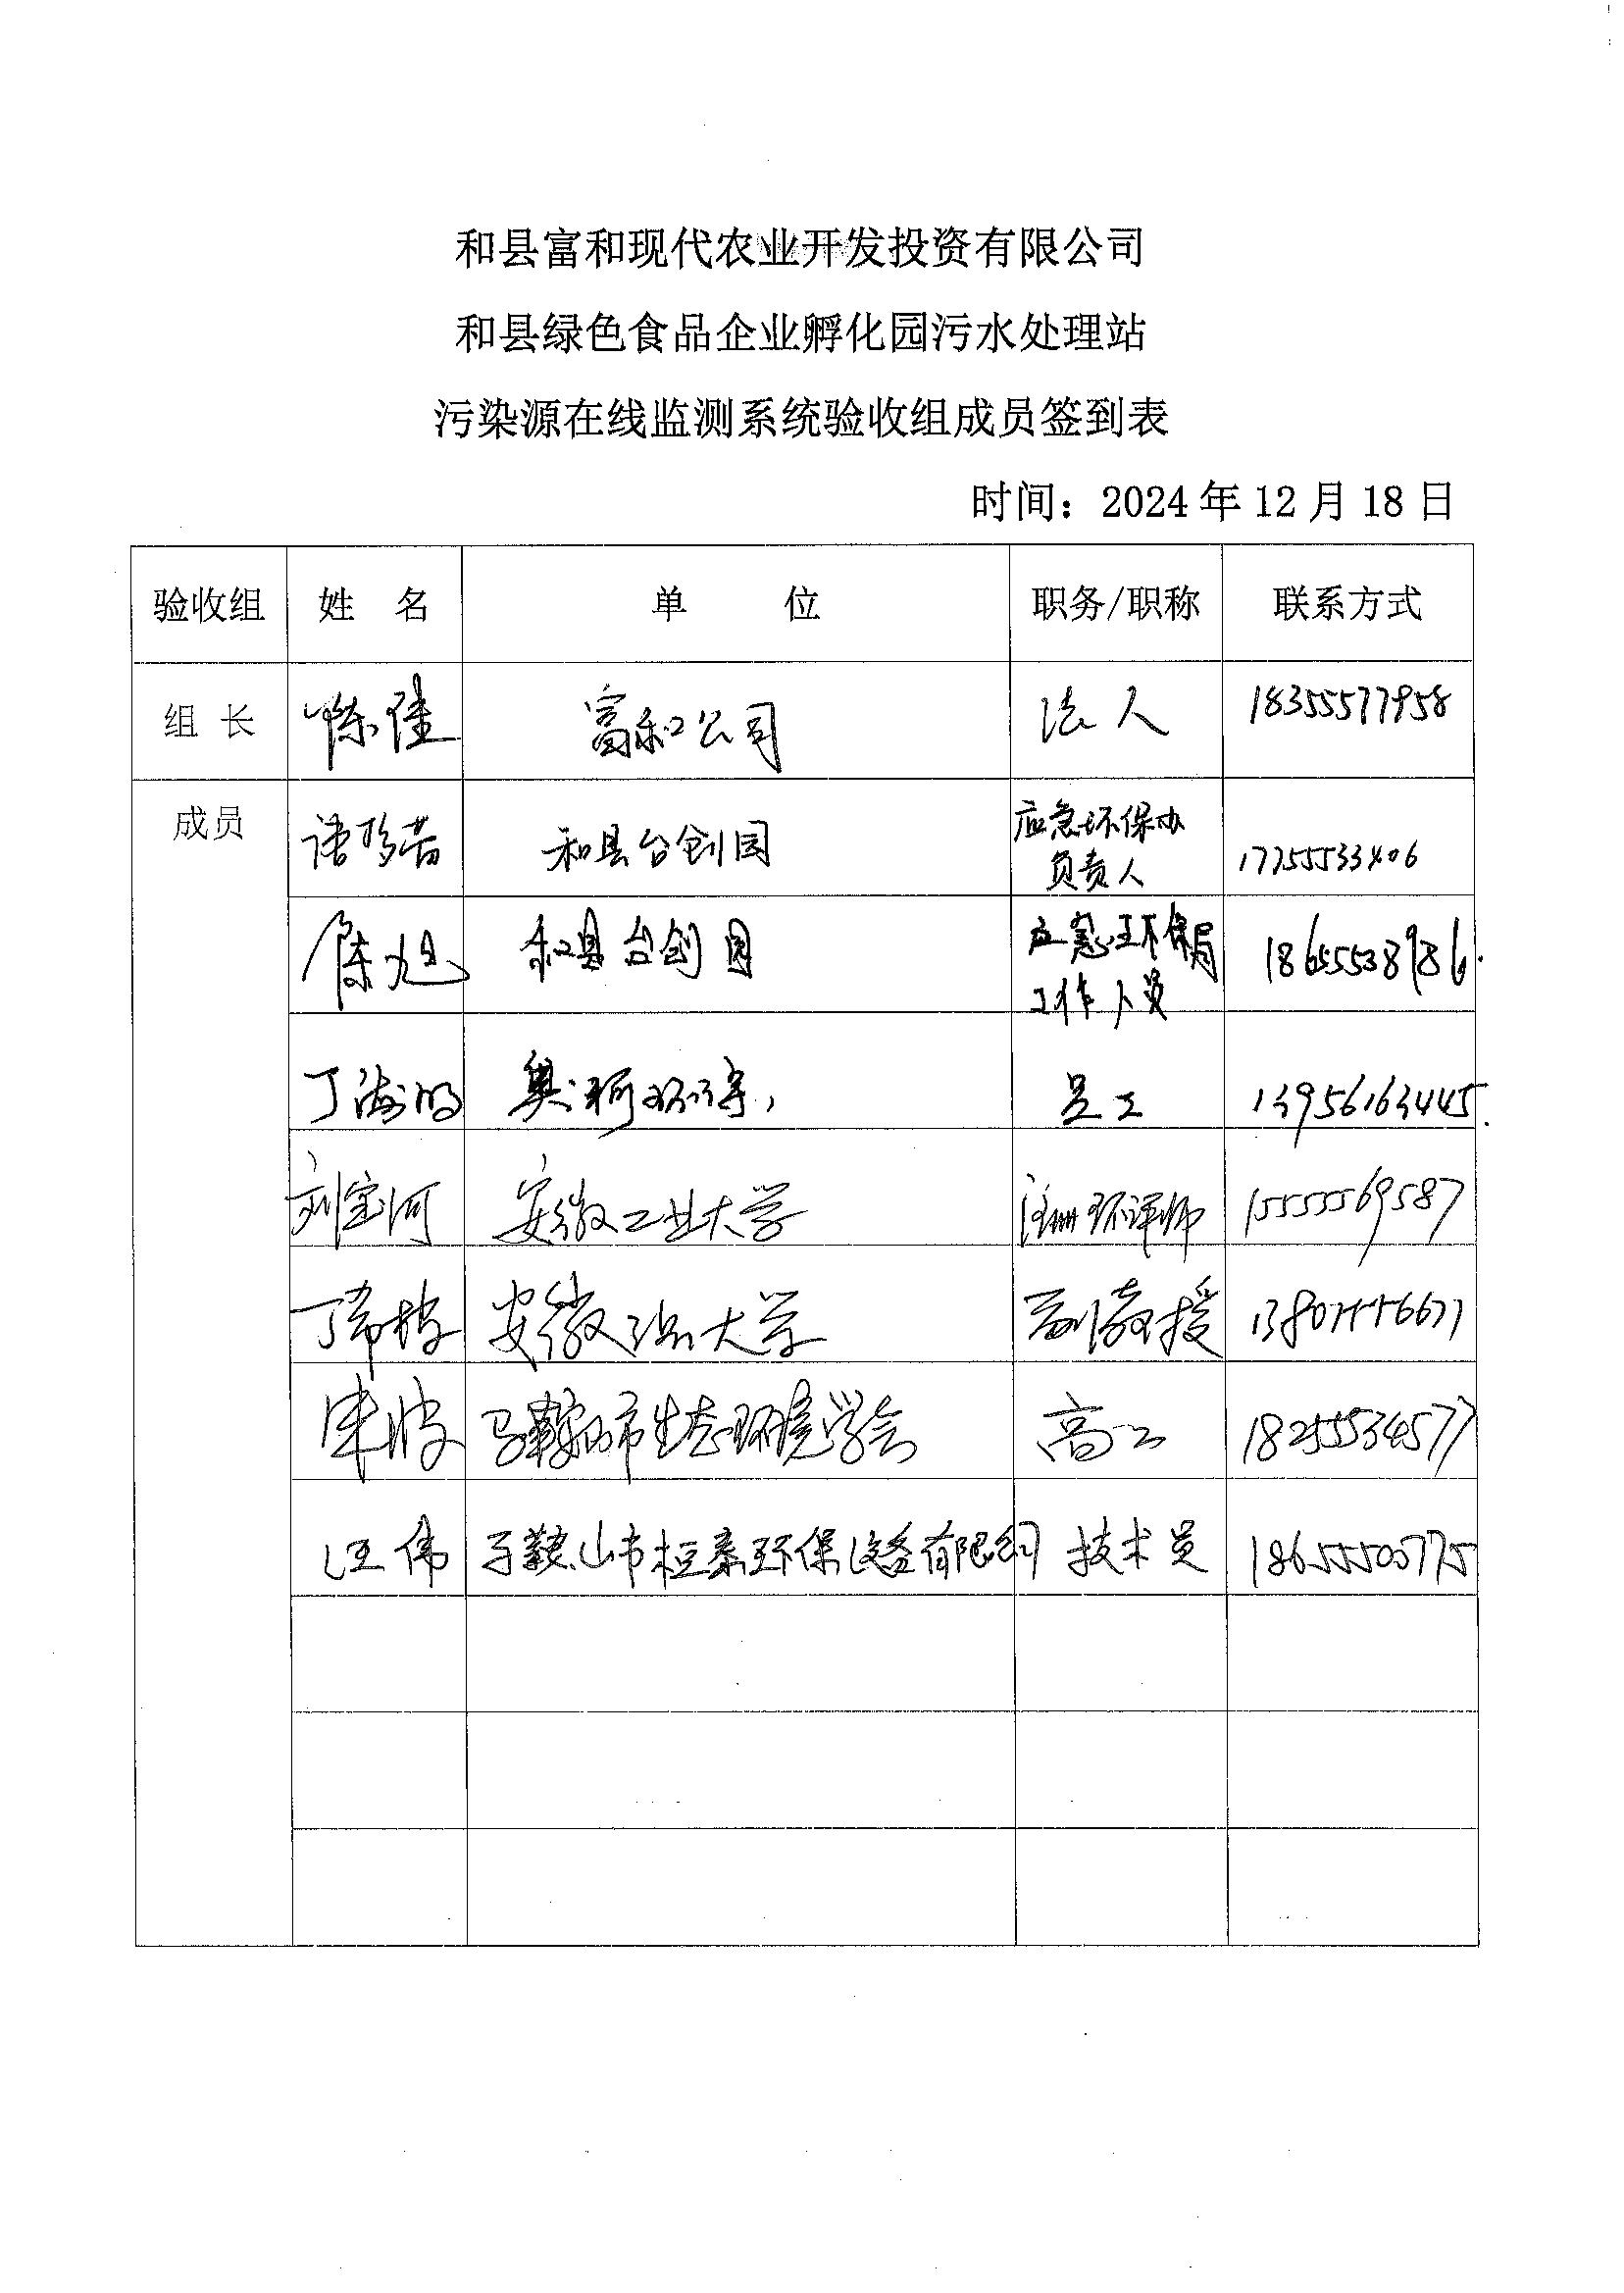 和县富和现代农业开发投资有限公司
和县绿色食品企业孵化园污水处理站
污染源在线监测系统验收组成员签到表
时间：2024年12月18日
验收组 姓 名 单 位 职务/职称 联系方式
组 长 陈佳 富和公司 法人 18355577958
成员 和县台创园 应急环保办
负责人 17755533406
陈旭 和县台创园 应急环保局
工作人员 18655538986
丁海 员工 13956163445
刘宝河 安徽工业大学 注册环评师 15555569587
丁希 安徽工业大学 副教授
朱波 马鞍山市生态环境学会 高工 18255534577
汪伟 马鞍山市桓泰环保设备有限公司 技术员 18655505775